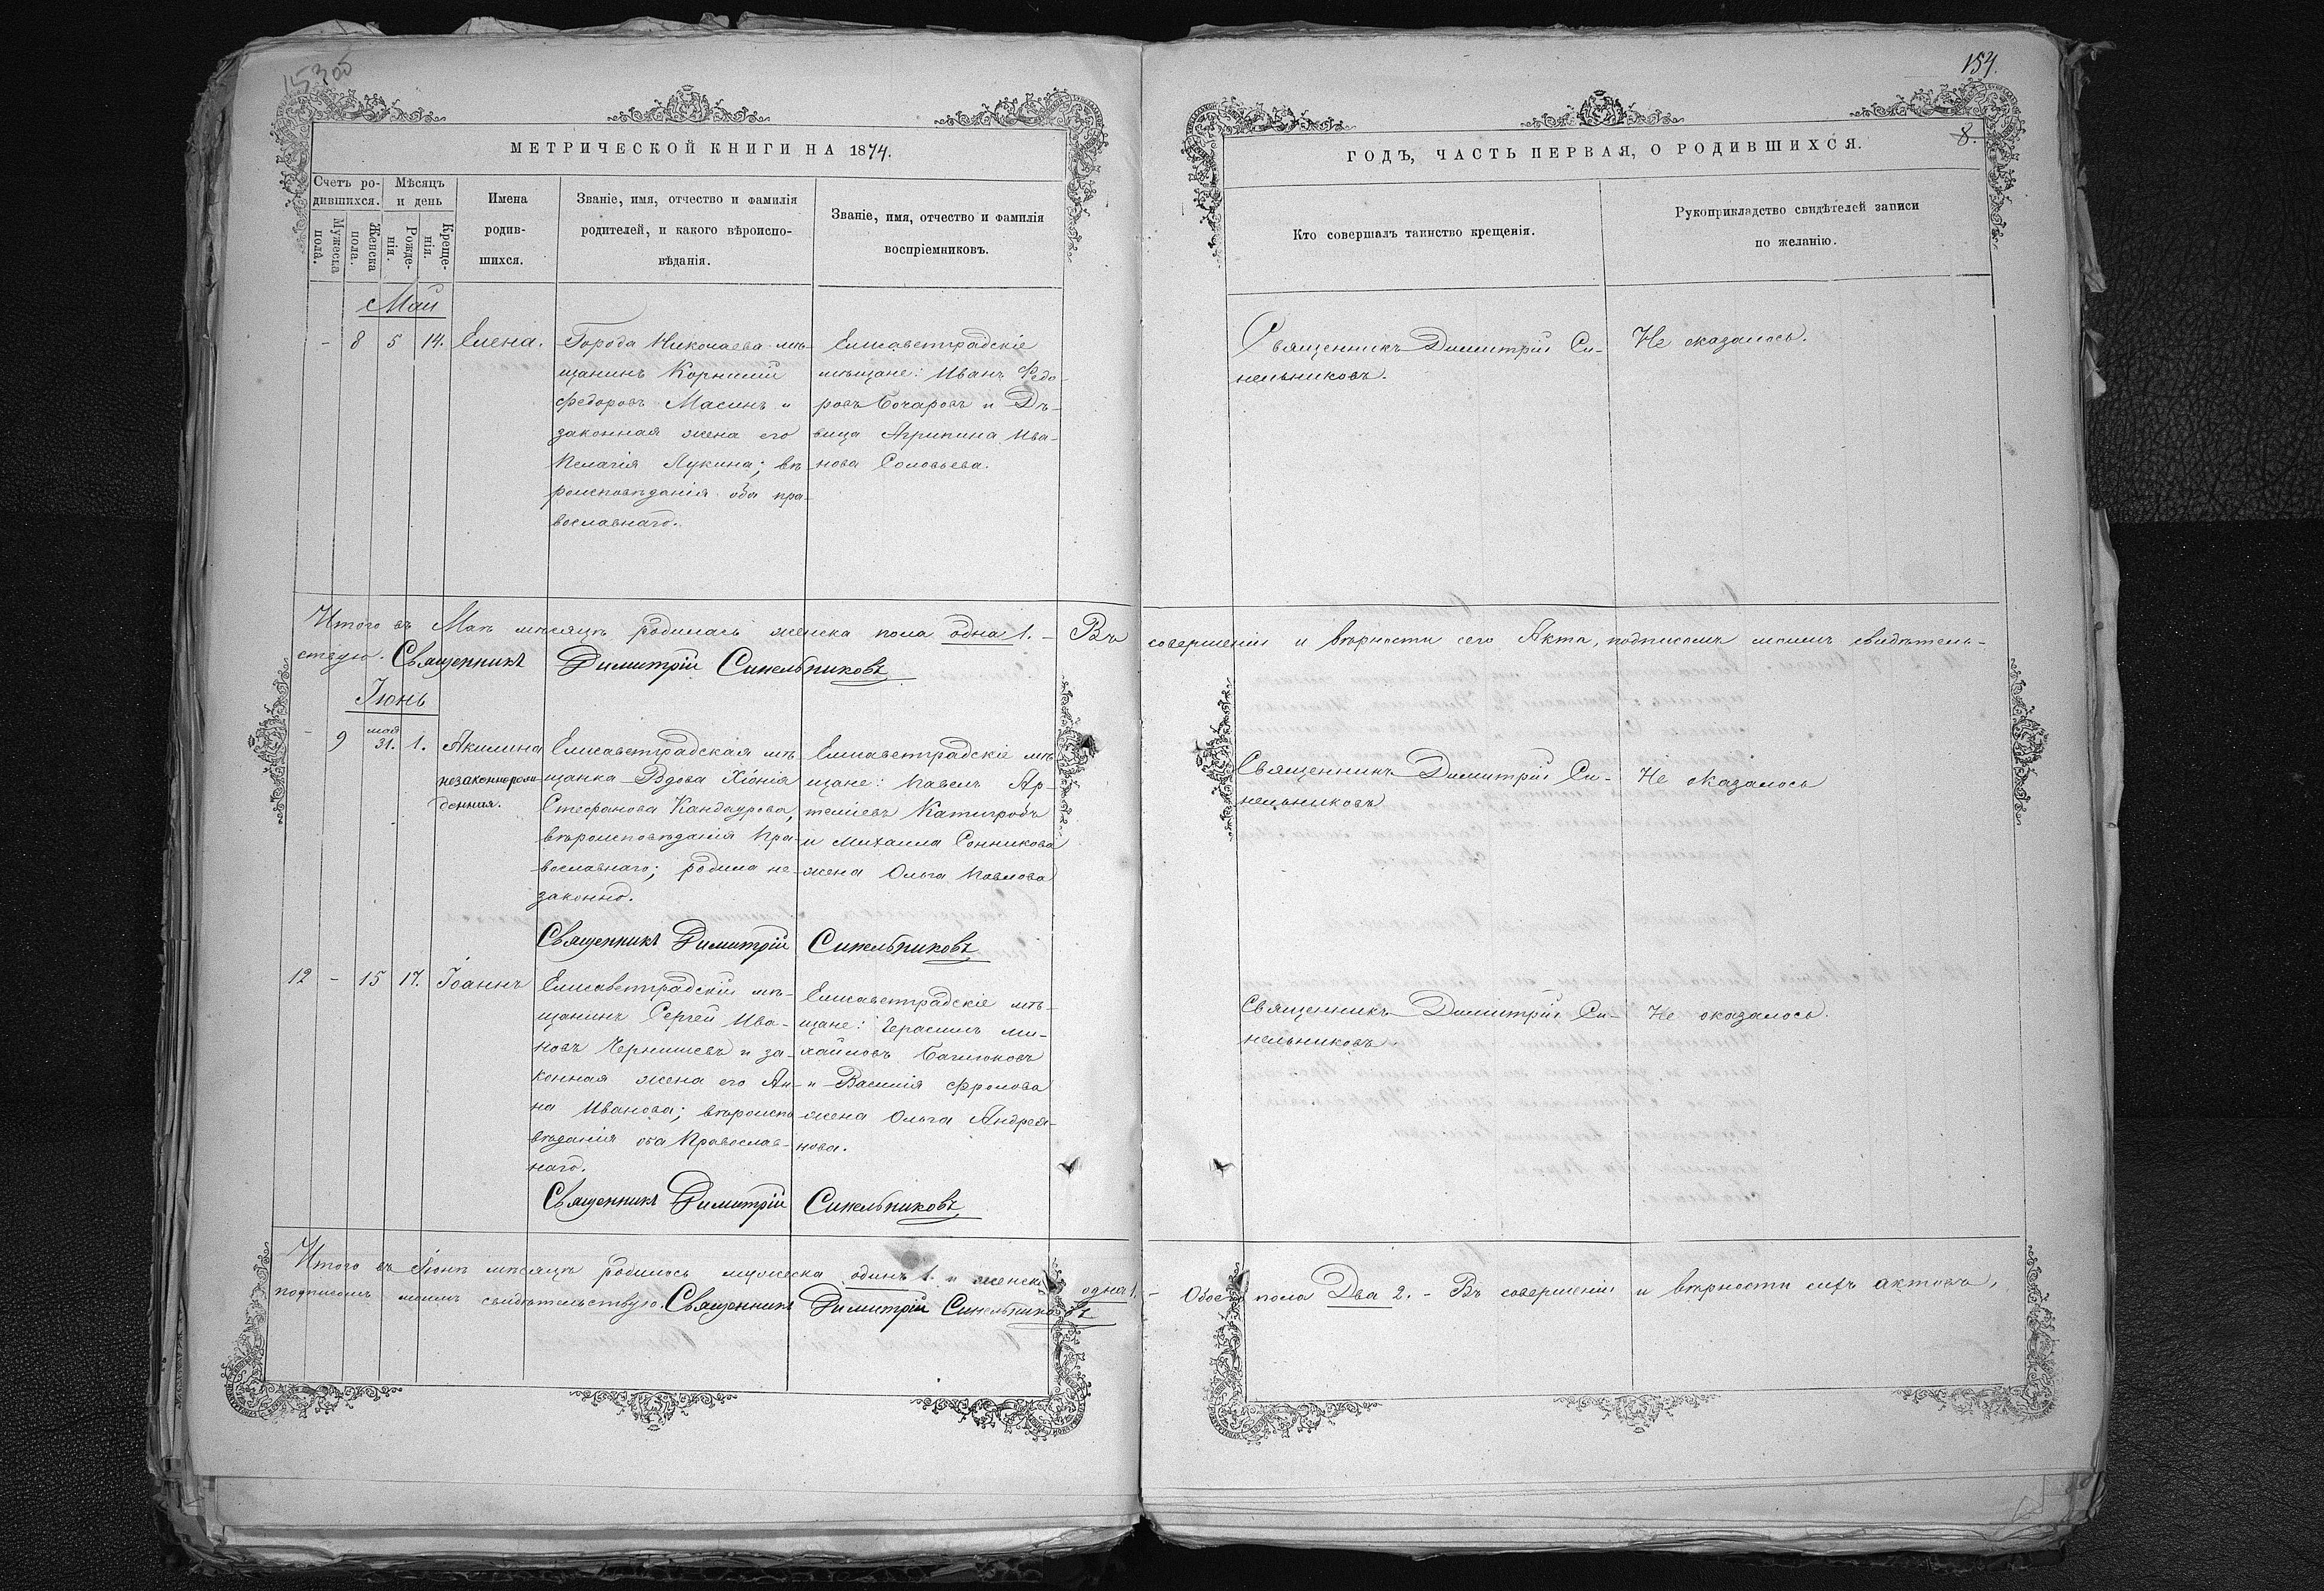 154.
8.
МЕТРИЧЕСКОЙ КНИГИ НА 1874.
ГОДЪ, ЧАСТЬ ПЕРВАЯ, О РОДИВШИХСЯ.
Счетъ ро-
дившихся.
Мужеска
пола.
Женска
пола.
Мѣсяцъ
и день
Рожде-
нія.
Креще-
нія.
Имена
родив-
шихся.
Званіе, имя, отчество и фамилія
родителей, и какого вѣроиспо-
вѣданія.
Званіе, имя, отчество и фамилія
воспріемниковъ.
Кто совершалъ таинство крещенія.
Рукоприкладство свидѣтелей записи
по желанію.
Май
- 8 5 14. Елена.
Города Николаева мѣ-
щанинъ Корнилій
Федоровъ Масинъ и
законная жена его
Пелагія Лукина; вѣ-
роисповѣданія оба пра-
вославнаго.
Елисаветградскіе
мѣщане: Иванъ Федо-
ровъ Бочаровъ и Дѣ-
вица Агрипина Ива-
нова Соловьева.
Священникъ Димитрій Си-
нельниковъ.
Не оказалось.
Итого въ Маѣ мѣсяцѣ родилась женска пола одна 1. - Въ совершеніи и вѣрности сего Акта, подписомъ моимъ свидѣтель-
ствую. Священникъ Димитрій Синельниковъ
Іюнь
- 9 мая 31. 1. Акилина
незаконнорож-
денная.
Елисаветградская мѣ-
щанка Вдова Хіонія
Стефанова Кандаурова,
вѣроисповѣданія Пра-
вославнаго; родила не-
законно.
Елисаветградскіе мѣ-
щане: Павелъ Ар-
теміевъ Катигробъ
и Михаила Сонникова
жена Ольга Павлова
Священникъ Димитрій Си-
нельниковъ
Не оказалось
Священникъ Димитрій Синельниковъ
12 - 15 17. Іоаннъ
Елисаветградскій мѣ-
щанинъ Сергей Ива-
новъ Чернишевъ и за-
конная жена его Ан-
на Иванова; вѣроиспо-
вѣданія оба Православ-
наго.
Елисаветградскіе мѣ-
щане: Герасимъ Ми-
хайловъ
и Василія Фролова
жена Ольга Андрея-
нова.
Священникъ Димитрій Си-
нельниковъ.
Не оказалось.
Священникъ Димитрій Синельниковъ
Итого въ Іюнѣ мѣсяцѣ родилось мужеска одинъ 1. и женска одна 1. - Обоего пола Два 2. - Въ совершеніи и вѣрности сихъ актовъ,
подписомъ моимъ свидѣтельствую. Священникъ Димитрій Синельниковъ